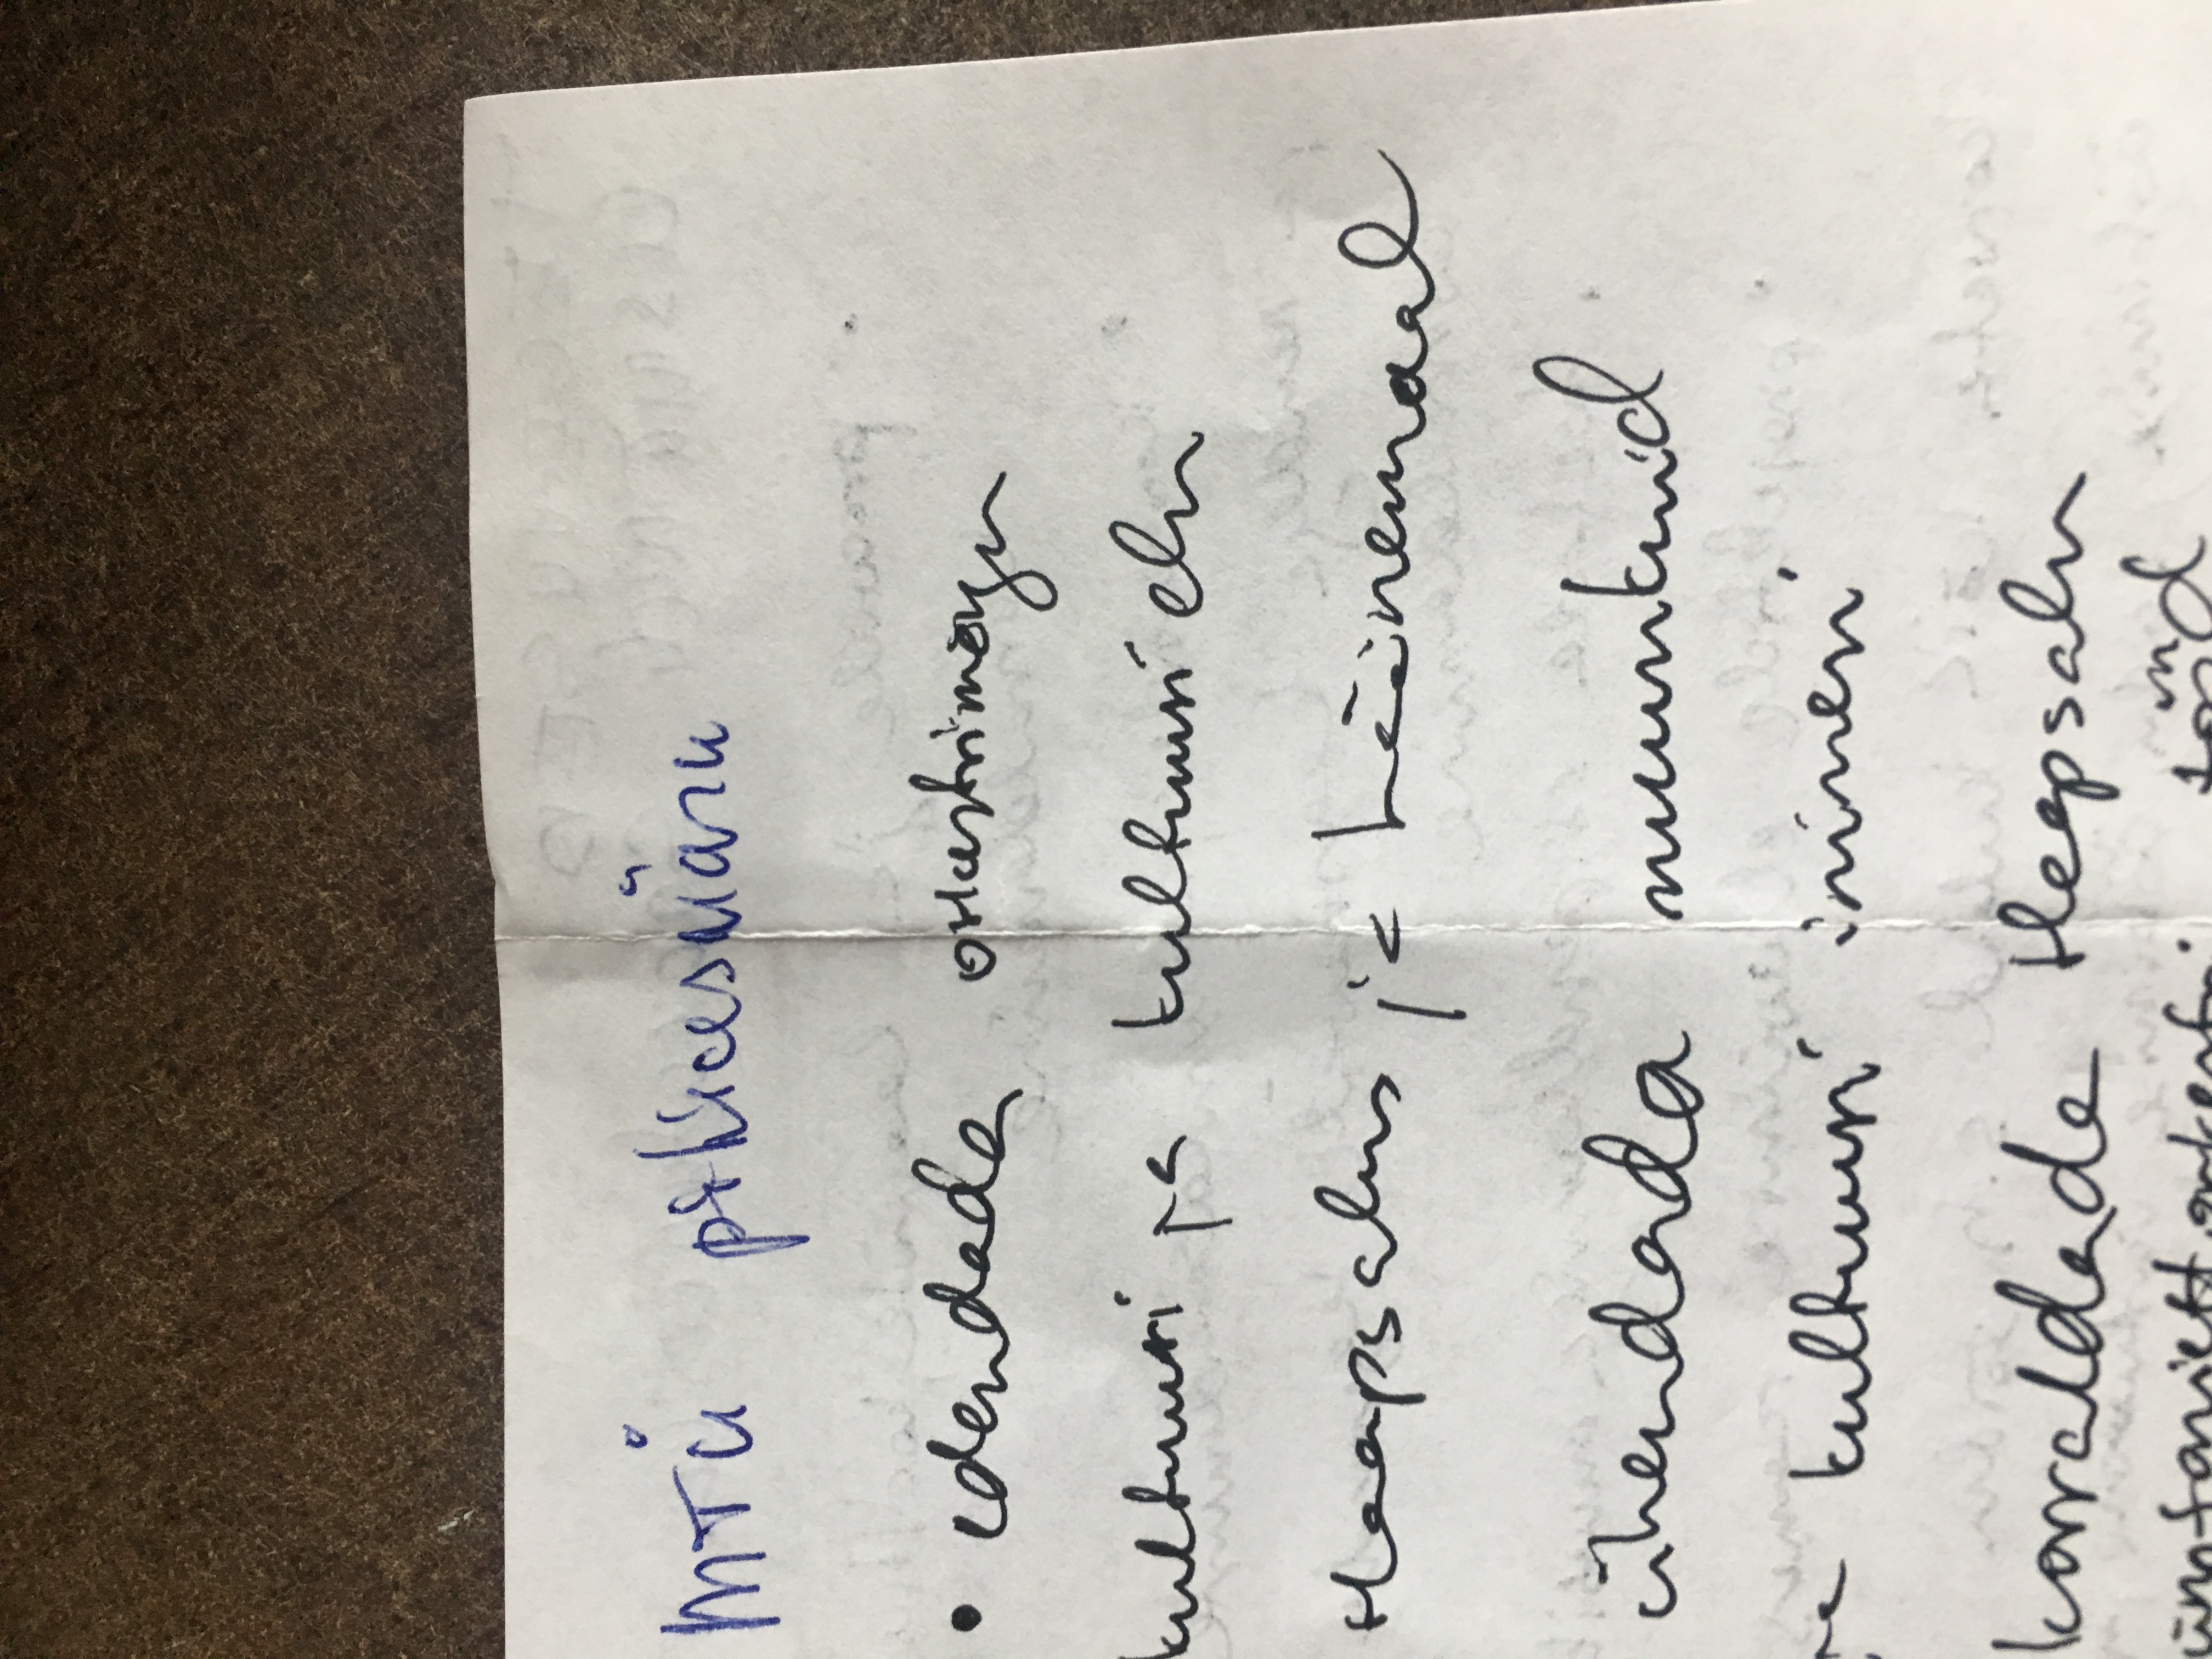 MTÜ põhieesmärk
• edendada orkestrimängu
kultuuri ja kultuuri elu
Haapsalus ja Läänemaal
ühendada muusikuid
kultuuri inimesi
korraldada Haapsalu